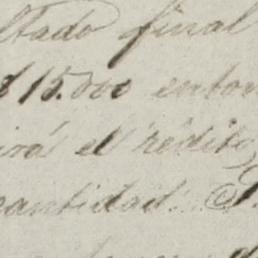 ltado final
$15.000 enton
irá el rédito,
cantidad.